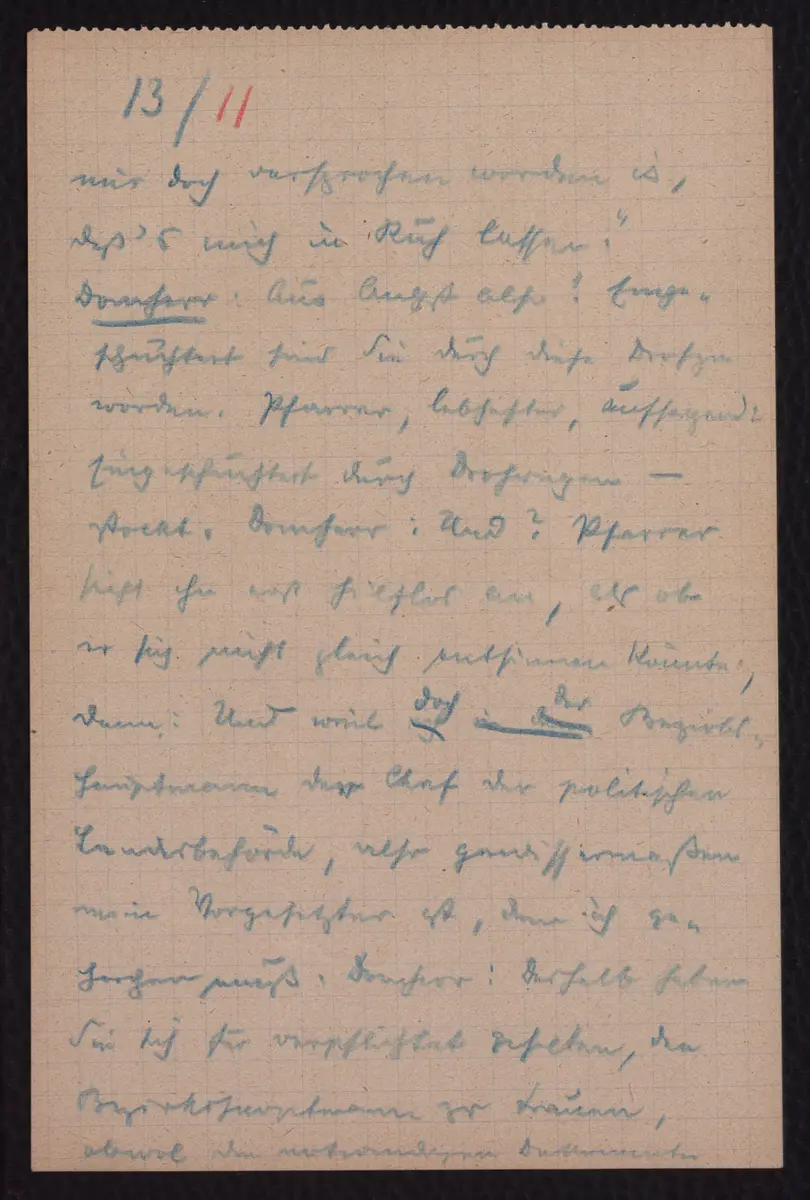 13/11
mir doch versprochen worden is,
daß's mich in Ruh lassen."
Domherr: Aus Angst also! Einge-
schüchtert sind Sie durch diese Drohungen
worden. Pfarrer, lebhafter, aufsagend:
Eingeschüchtert durch Drohungen —
stockt. Domherr: Und? Pfarrer
sieht ihn erst hilflos an, als ob
er sich nicht gleich entsinnen könnte,
dann: Und weil doch der Bezirks-
hauptmann der Chef der politischen
Landesbehörde, also gewissermaßen
mein Vorgesetzter ist, dem ich ge-
horchen muß. Domherr: Deshalb haben
Sie sich für verpflichtet gehalten, den
Bezirkshauptmann zu trauen,
obwol die notwendigen Dokumente